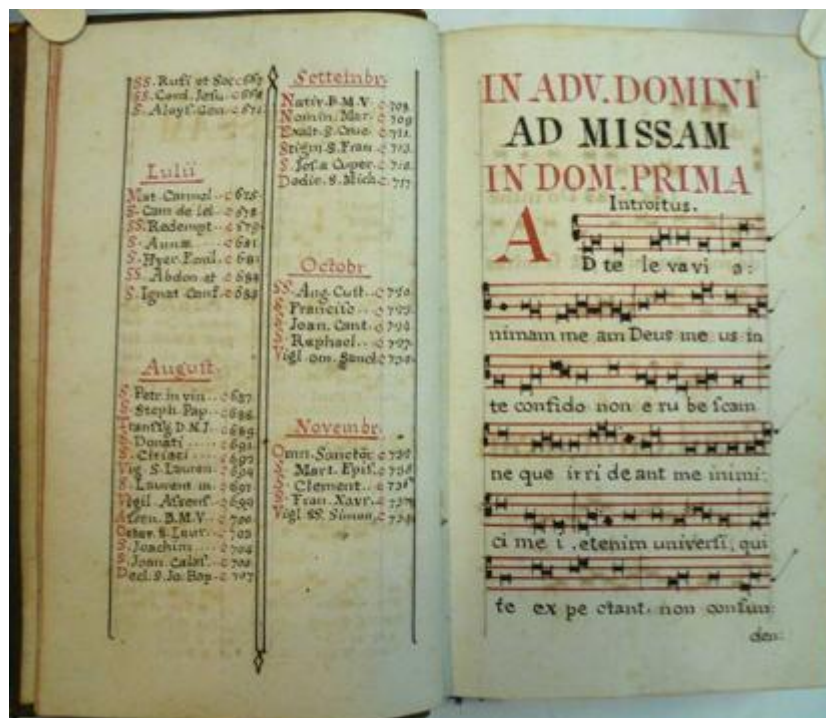 SS. Rufi et Soc. c 667
SS. Cord. Jesu. c 668
S. Aloys. Gon. c 671
Lulii
Mat. Carmel. c 675
S. Cam de Lel. c 678
SS. Redempt. c 679
S. Annæ c 681
S. Hyer. Emil. c 681
SS. Abdon et c 688
S. Ignat Conf. c 688
August.
S. Petr. in vin. c 687
S. Steph. Pap. c 688
Transfig D.N.J. c 689
S. Donati c 691
S. Ciriaci c 692
Vig. S. Lauren. c 694
S. Laurent m. c 697
Vigil Assens. c 699
Assen. B.M.V. c 700
Octav. S. Laur. c 703
S. Joachim c 704
S. Joan. Calas. c 706
Decl. S. Jo. Bap. c 707
Settembr.
Nativ. B.M.V. c 708
Nomin. Mar. c 709
Exalt. S. Cruc. c 711
Stigm. S. Fran. c 713
S. Jos. a Cuper. c
Dedic. S. Mich. c 717
Octobr
SS. Ang. Cust. c 720
S. Francisc. c
S. Joan. Cant. c
S. Raphael c 727
Vigl. om. Sanct. c
Novembr.
Omn. Sanctor. c
S. Mart. Epis. c
S. Clement. c
S. Fran. Xavr. c
Vigl SS. Simon. c
IN ADV. DOMINI
AD MISSAM
IN DOM. PRIMA
Introitus.
AD te le va vi a:
nimam me am Deus me us in
te confido non e ru be scam
ne que irri de ant me inimi:
ci me i, etenim universi, qui
te ex pe ctant. non confun:
den: